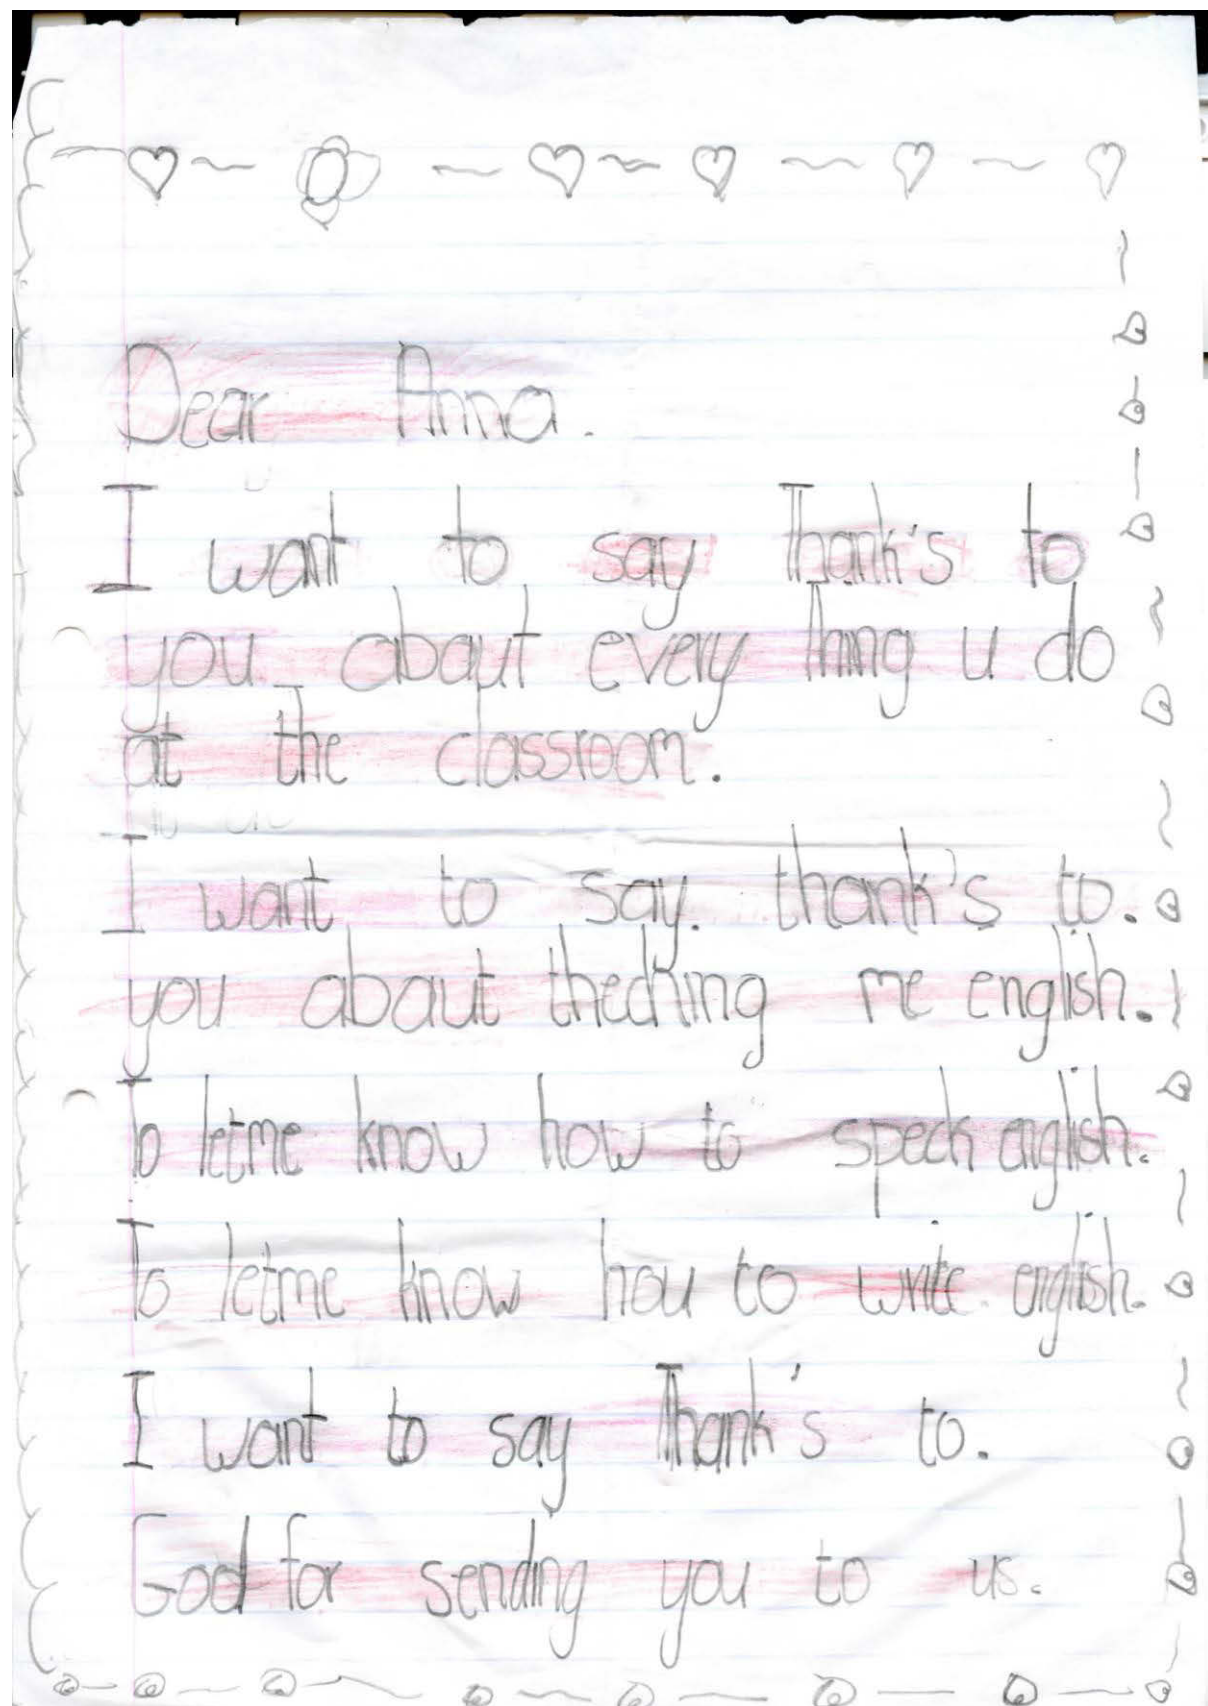 Dear Anna.
I want to say Thank's to
you about every thing u do
at the classroom.
I want to say. thank's to.
you about theching me english.
To letme know how to speck english.
To letme know hou to write english.
I want to say Thank's to.
God for sending you to us.